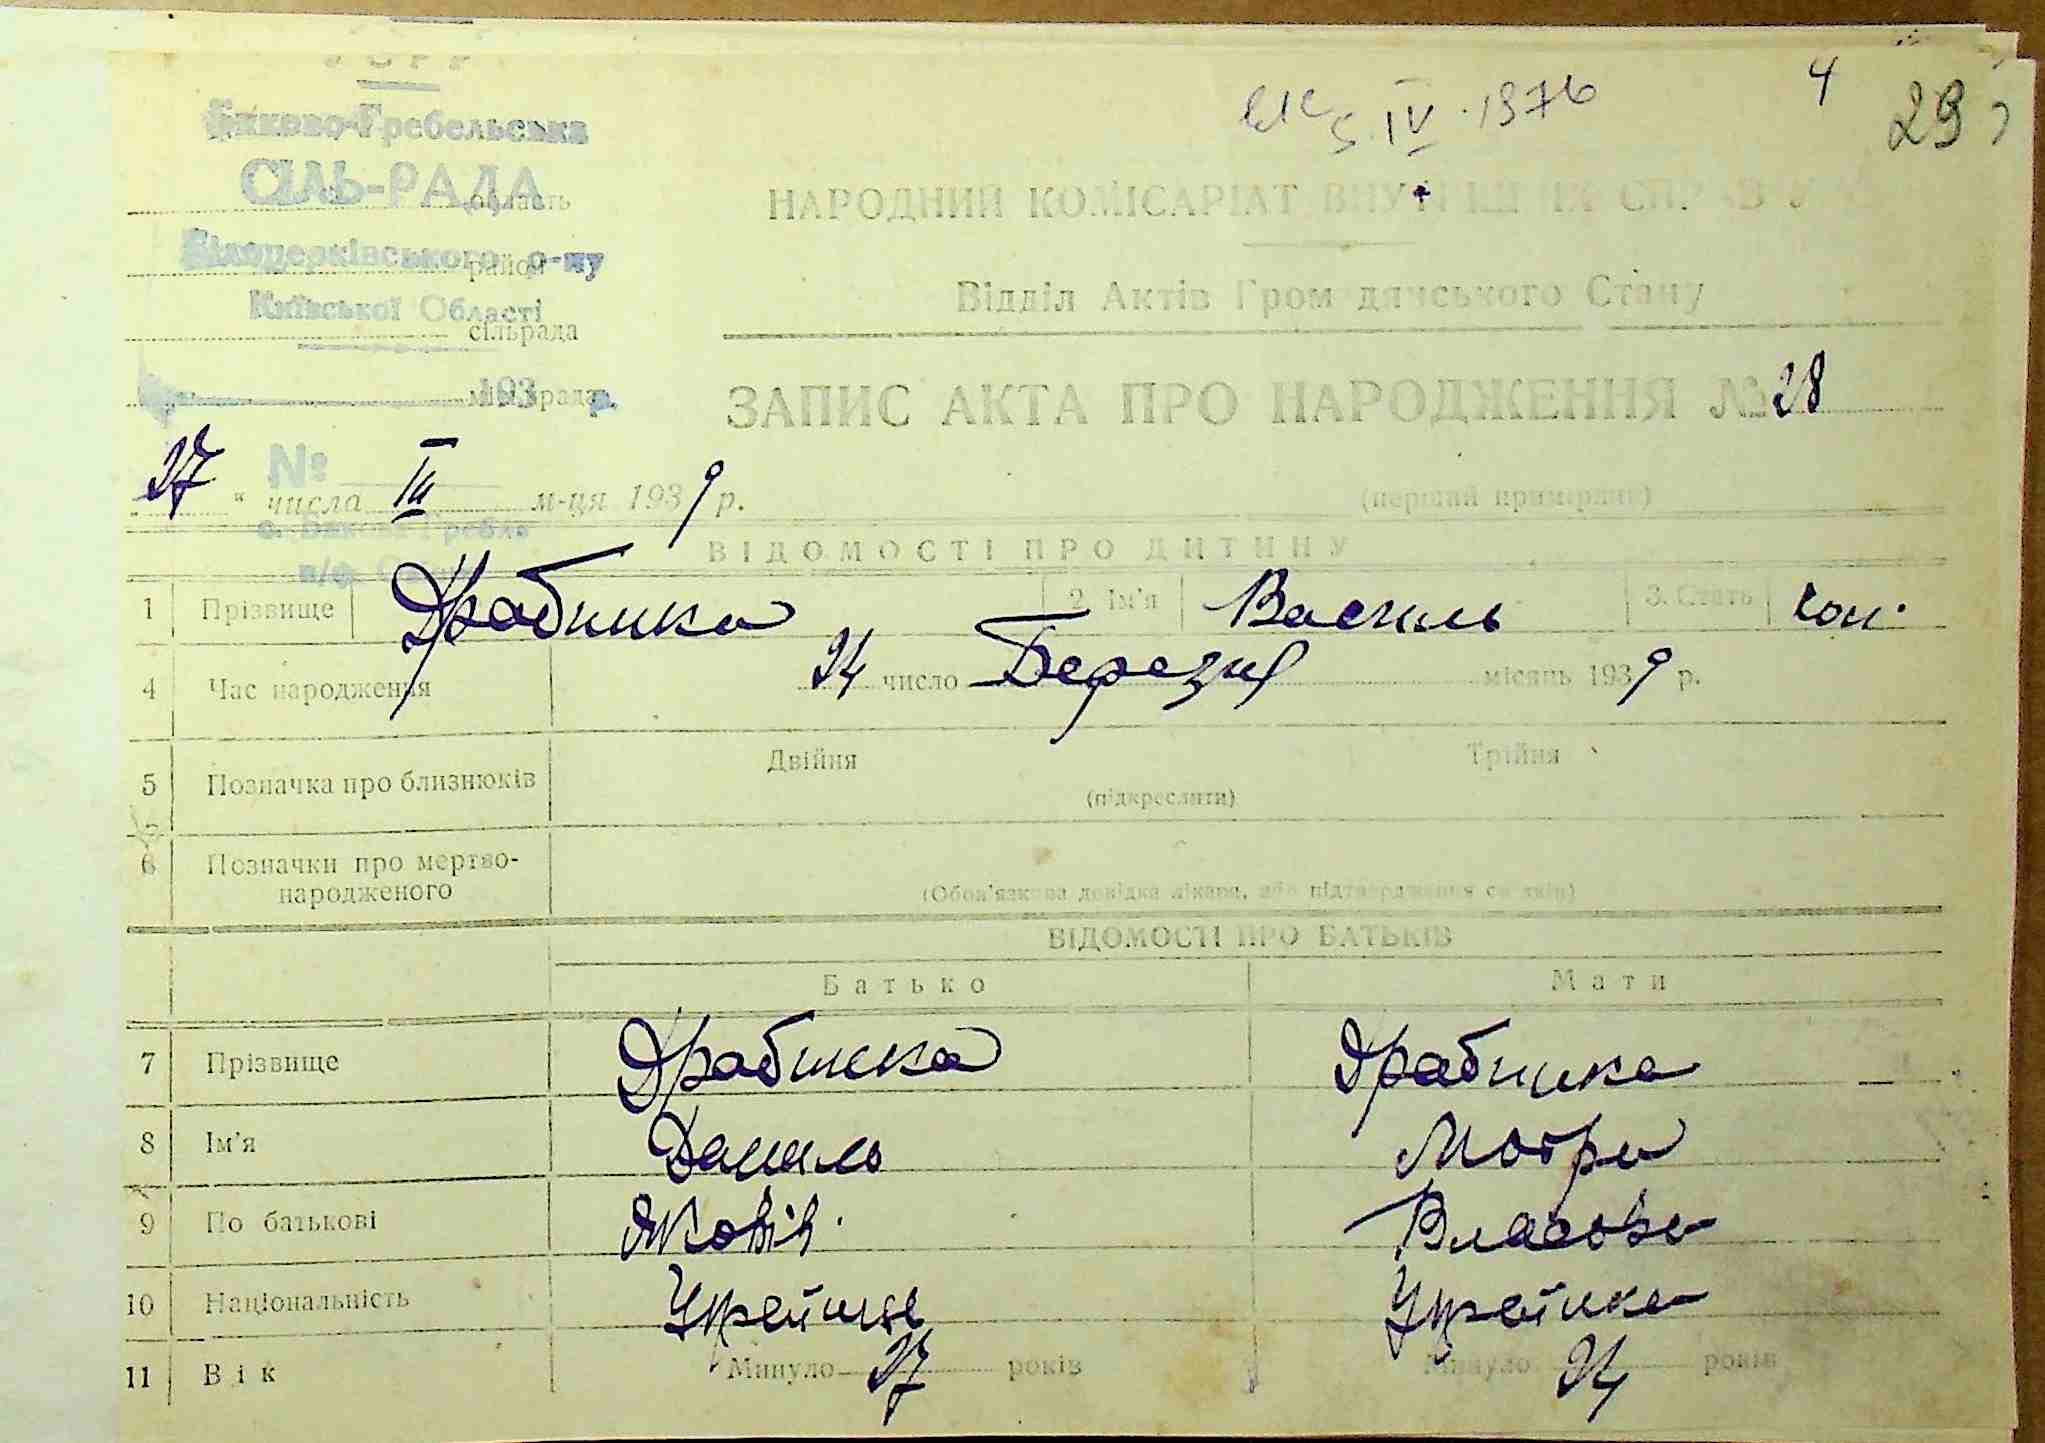 УСРР
Биково-Гребельська
СІЛЬ-РАДА
область
Білоцерківського р-ну
район
Київської Області
сільрада
193 р.
міськрада
№
с. Бикова Гребля
п/ф
5 IV 1976
4
29
НАРОДНИЙ КОМІСАРІАТ ВНУТРІШНІХ СПРАВ У
Відділ Актів Громадянського Стану
ЗАПИС АКТА ПРО НАРОДЖЕННЯ № 28
27 " числа III м-ця 1939 р.
(перший примірник)
ВІДОМОСТІ ПРО ДИТИНУ
1 Прізвище Драбинка 2. Ім'я Василь 3. Стать хол.
4 Час народження 24 число Березня місяць 1939 р.
5 Позначка про близнюків Двійня Трійня
(підкреслити)
6 Позначки про мертво-
народженого
(Обов'язкова довідка лікаря, або підтвердження свідків)
ВІДОМОСТІ ПРО БАТЬКІВ
Батько Мати
7 Прізвище Драбинка Драбинка
8 Ім'я Данило Мотря
9 По батькові Яковів. Власова
10 Національність Українець Українка
11 Вік Минуло 27 років Минуло 24 років